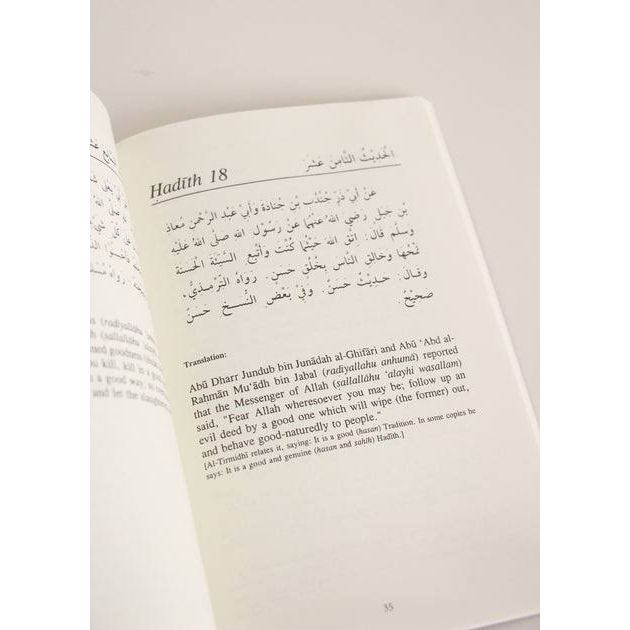 Ḥadīth 18
الحَدِيْثُ الثَّامِنَ عَشَرَ
عَنْ أَبِي ذَرٍّ جُنْدُبِ بْنِ جُنَادَةَ وَأَبِي عَبْدِ الرَّحْمٰنِ مُعَاذِ
بْنِ جَبَلٍ رَضِيَ اللهُ عَنْهُمَا عَنْ رَسُوْلِ اللهِ صَلَّى اللهُ عَلَيْهِ
وَسَلَّمَ قَالَ: اِتَّقِ اللهَ حَيْثُمَا كُنْتَ وَأَتْبِعِ السَّيِّئَةَ الْحَسَنَةَ
تَمْحُهَا وَخَالِقِ النَّاسَ بِخُلُقٍ حَسَنٍ. رَوَاهُ التِّرْمِذِيُّ،
وَقَالَ: حَدِيْثٌ حَسَنٌ. وَفِي بَعْضِ النُّسَخِ حَسَنٌ
صَحِيْحٌ.
Translation:
Abū Dharr Jundub bin Junādah al-Ghifāri and Abū ‘Abd al-
Raḥmān Mu‘ādh bin Jabal (radiyallahu anhumā) reported
that the Messenger of Allah (sallallāhu ‘alayhi wasallam)
said, "Fear Allah wheresoever you may be; follow up an
evil deed by a good one which will wipe (the former) out,
and behave good-naturedly to people."
[Al-Tirmidhī relates it, saying: It is a good (hasan) Tradition. In some copies he
says: It is a good and genuine (hasan and sahih) Ḥadīth.]
35
(radiyallāhu
(sallallāhu
goodness
you kill, kill in a
a good way, so
and let the